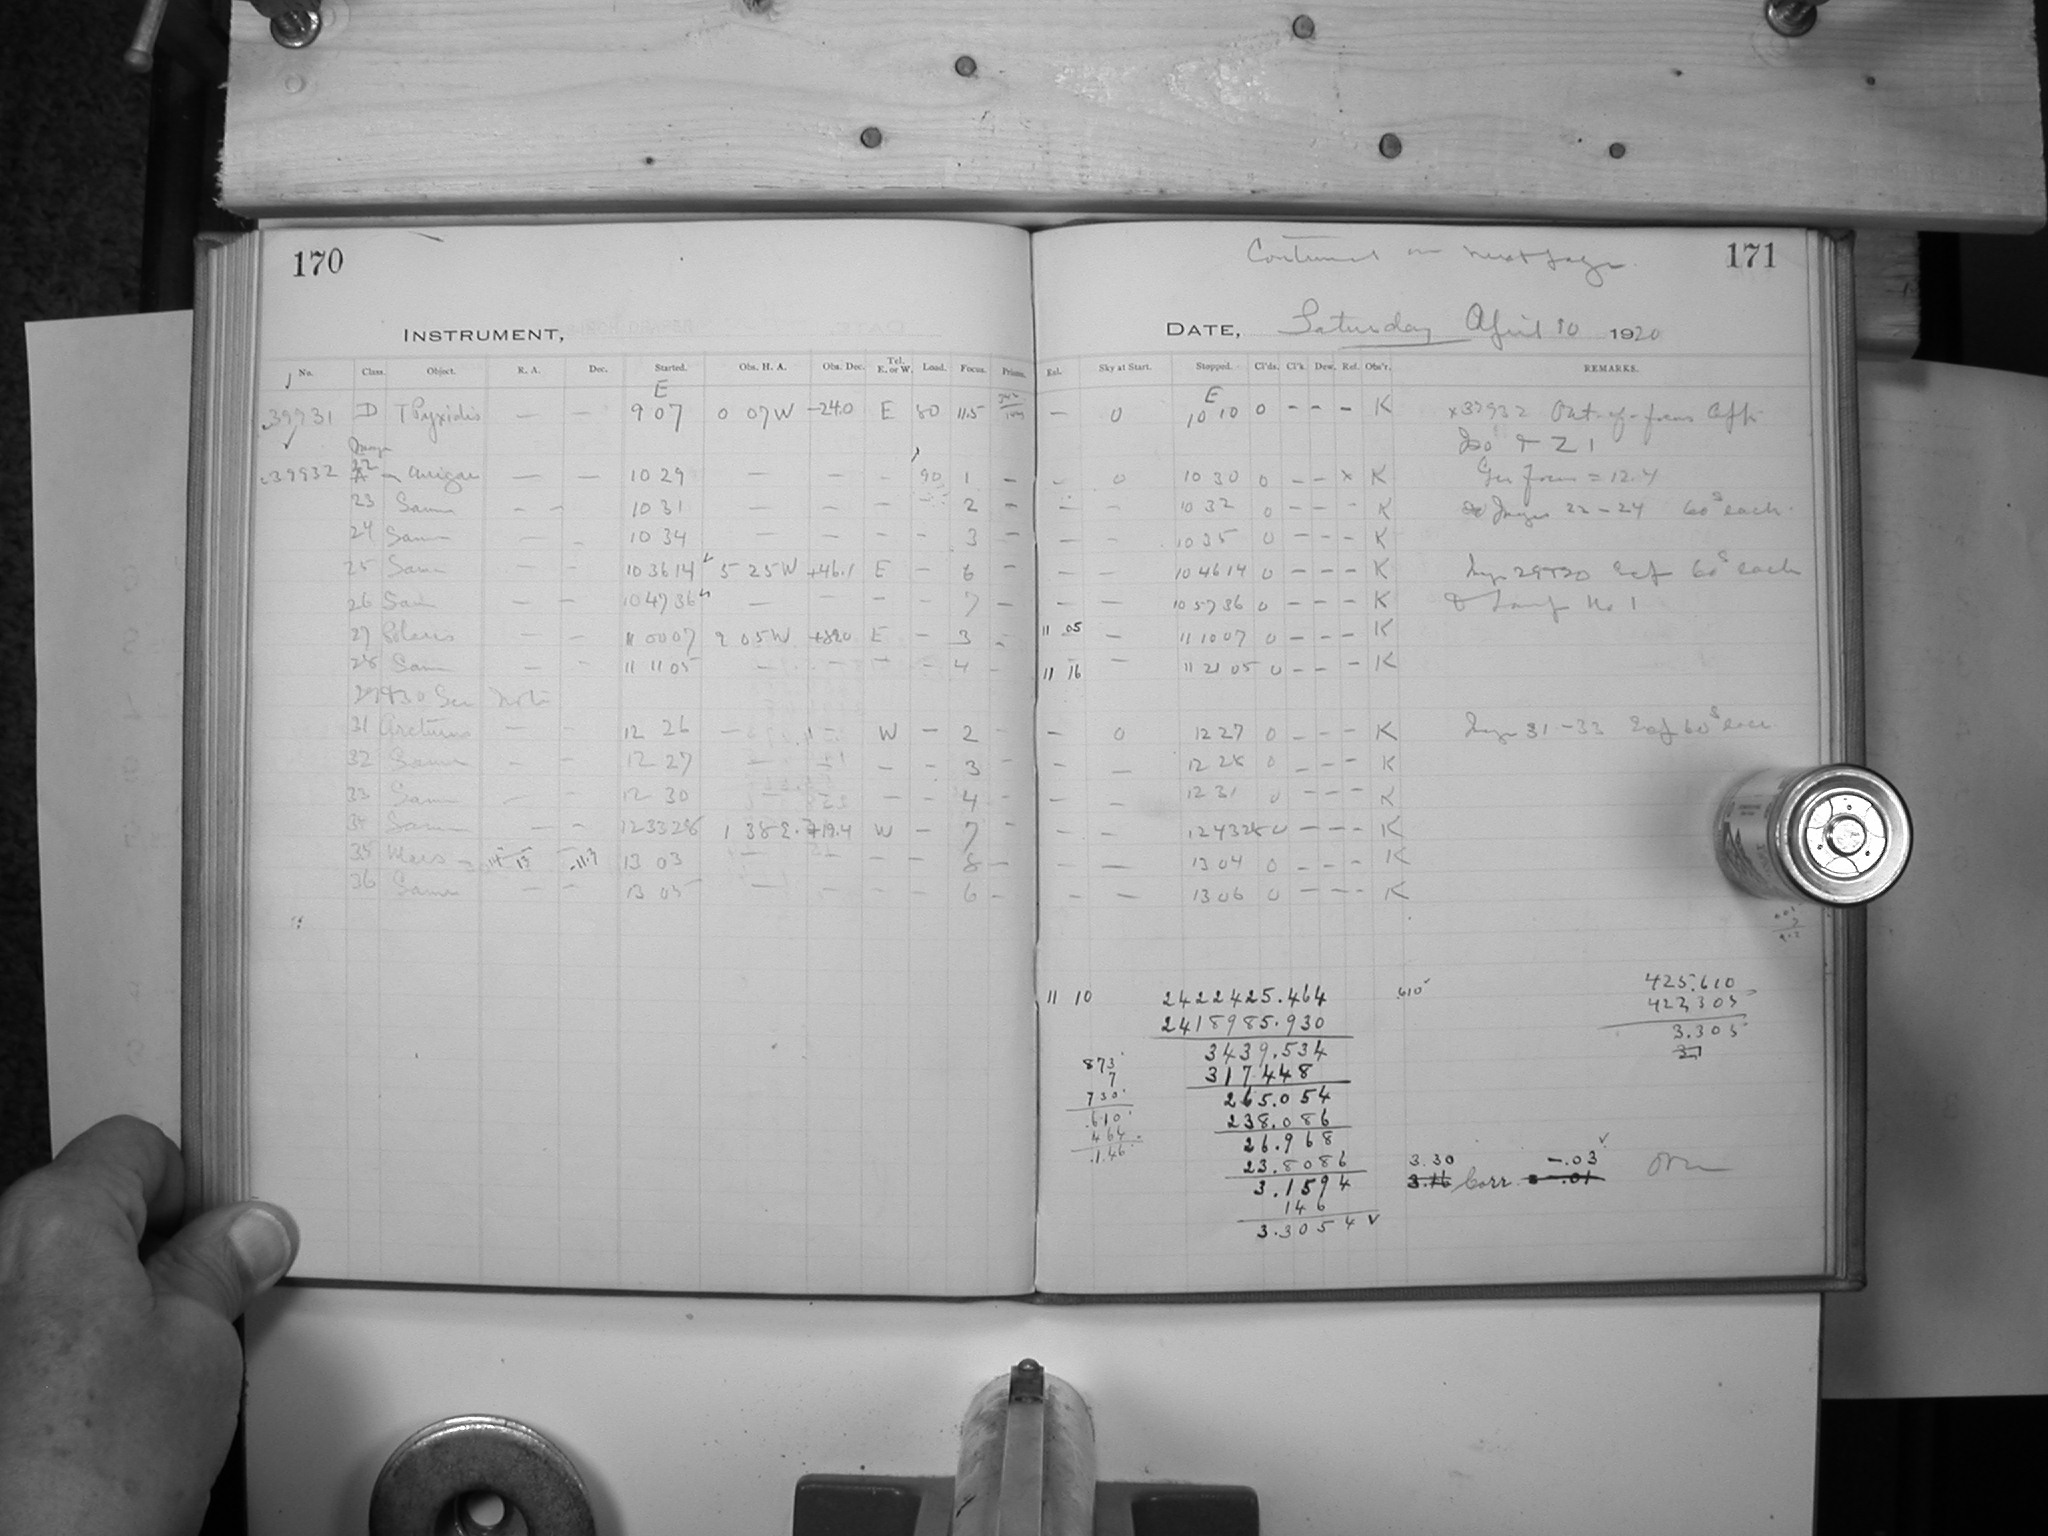 170
INSTRUMENT,
No. Class. Object. R. A. Dec. Started. Obs. H. A. Obs. Dec. Tel. E. or W. Load. Focus. Prisms.
E
39931 D T Pyxidis — — 9 07 0 07 W -24.0 E 80 11.5
39932 22 Aurigae — — 10 29 — — - 90 1 -
23 Same - - 10 31 — — - 2 -
24 Same — - 10 34 — — - - 3 -
25 Same — - 10 36 14 5 25 W +46.1 E - 6 -
26 Same — - 10 47 36 — — - - 7 -
27 Polaris — - 11 00 07 9 05 W E - 3 -
28 Same - - 11 11 05 - - - - 4 -
29 & 30 See note
31 Arcturus — - 12 26 - - W - 2 -
32 Same - - 12 27 — - - - 3 -
33 Same - - 12 30 — - - 4 -
34 Same — - 12 33 28 1 38 E +19.4 W - 7 -
35 Mars 14 13 -11.3 13 03 — - - - 8 -
36 Same - - 13 05 — - - - 6 -
Continued on next page.
171
DATE, Saturday April 10 1920
Exl. Sky at Start. Stopped. Cl'ds. Cl'k. Dew. Ref. Obs'r. REMARKS.
E
— 0 10 10 0 - - - K x 39932 Out-of-focus
- 0 10 30 0 - - x K focus = 12.4
- - 10 32 0 - - - K 22-24 60s each.
— — 10 35 0 - - - K
- — 10 46 14 0 - - - K 60s each
- — 10 57 36 0 - - - K No 1
11 05 - 11 10 07 0 - - - K
11 16 — 11 21 05 0 - - - K
- 0 12 27 0 - - - K 31-33 60s each
- — 12 28 0 - - - K
- - 12 31 0 - - - K
- — 12 43 28 0 - - - K
- — 13 04 0 - - - K
- — 13 06 0 - - - K
11 10 2422425.464 .610 425.610
2418985.930 423305
3439.534 3.305
873 317448
7 265.054
730 238.086
.610 26.968
464 23.8086 3.30 -.03
.146 3.1594 Corr.
146
3.3054 v